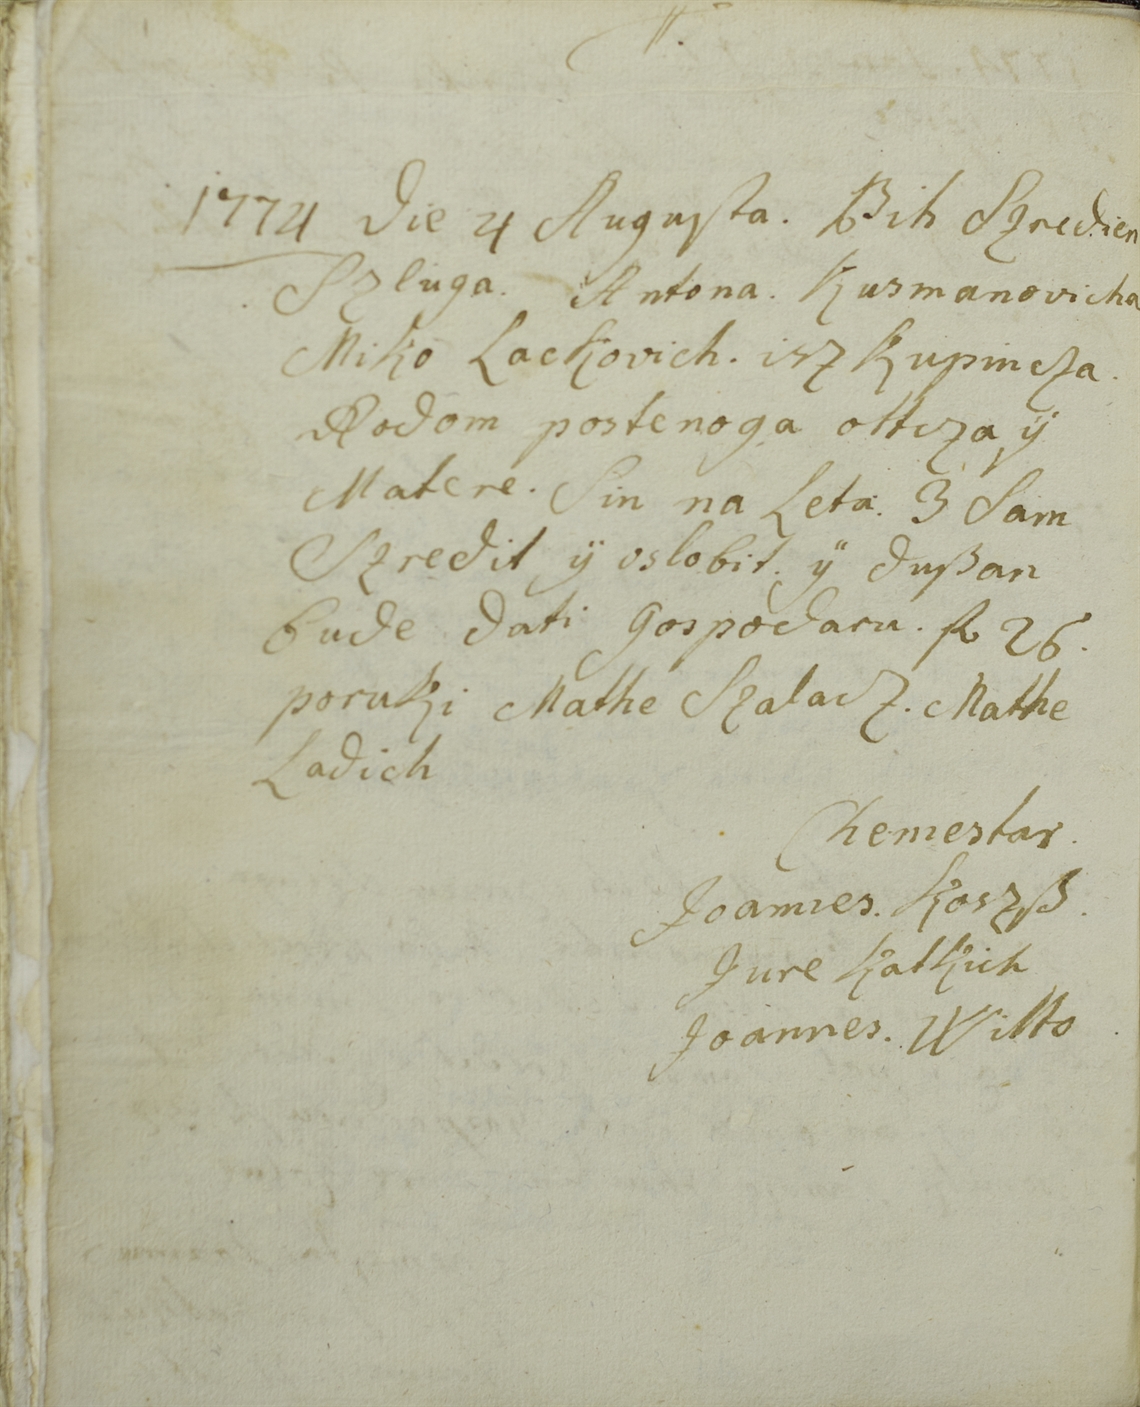 1774 Die 4 Augusta. Bih Szredien
Szluga. Antona. Kusmanovicha
Miko Lackovich. isz Kupincza.
Rodom postenoga ottcza ÿ
Matere. Sin na Leta. 3 Sam
Szredit ÿ oslobit. ÿ dußan
bude dati gospodaru. f 26.
poruki Mathe Szalacz. Mathe
Ladich
Chemestar.
Joannes. Koszß.
Jure Katkich
Joannes. Witto